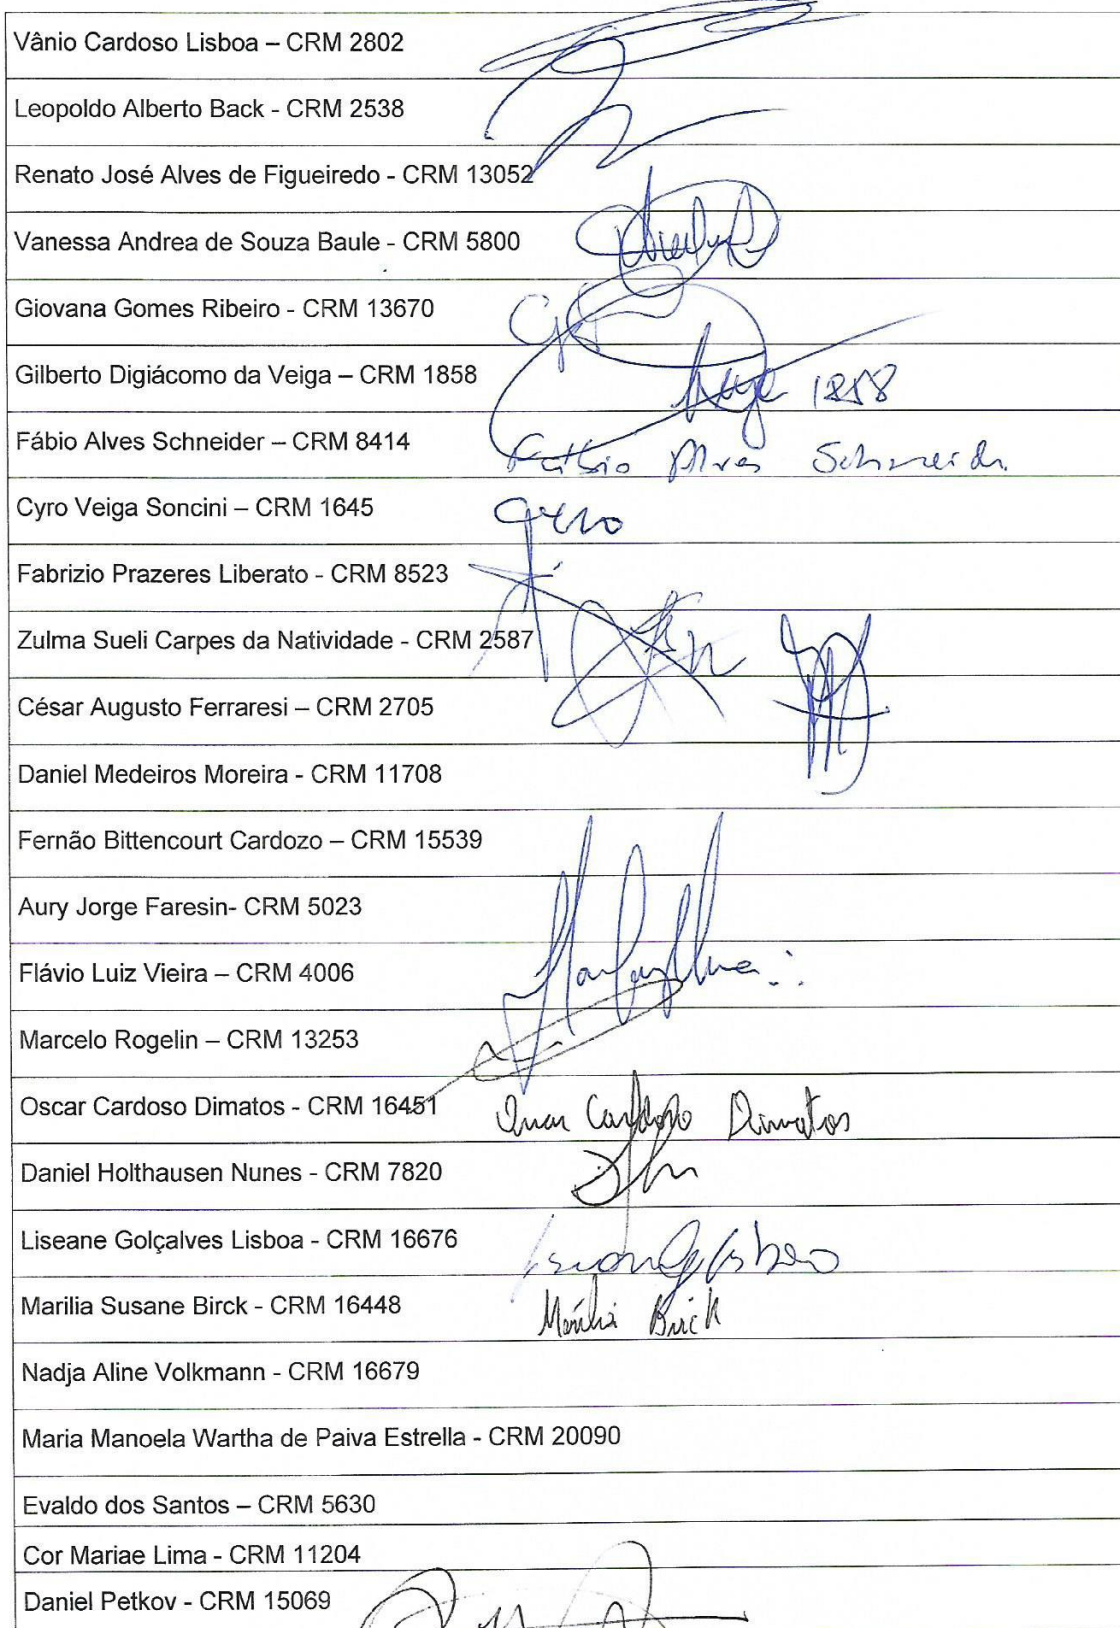 Vânio Cardoso Lisboa – CRM 2802
Leopoldo Alberto Back - CRM 2538
Renato José Alves de Figueiredo - CRM 13052
Vanessa Andrea de Souza Baule - CRM 5800
Giovana Gomes Ribeiro - CRM 13670
Gilberto Digiácomo da Veiga – CRM 1858 1858
Fábio Alves Schneider – CRM 8414 Fábio Alves Schneider
Cyro Veiga Soncini – CRM 1645 Cyro
Fabrizio Prazeres Liberato - CRM 8523
Zulma Sueli Carpes da Natividade - CRM 2587
César Augusto Ferraresi – CRM 2705
Daniel Medeiros Moreira - CRM 11708
Fernão Bittencourt Cardozo – CRM 15539
Aury Jorge Faresin- CRM 5023
Flávio Luiz Vieira – CRM 4006
Marcelo Rogelin – CRM 13253
Oscar Cardoso Dimatos - CRM 16451 Oscar Cardoso Dimatos
Daniel Holthausen Nunes - CRM 7820
Liseane Golçalves Lisboa - CRM 16676
Marilia Susane Birck - CRM 16448 Marília Birck
Nadja Aline Volkmann - CRM 16679
Maria Manoela Wartha de Paiva Estrella - CRM 20090
Evaldo dos Santos – CRM 5630
Cor Mariae Lima - CRM 11204
Daniel Petkov - CRM 15069